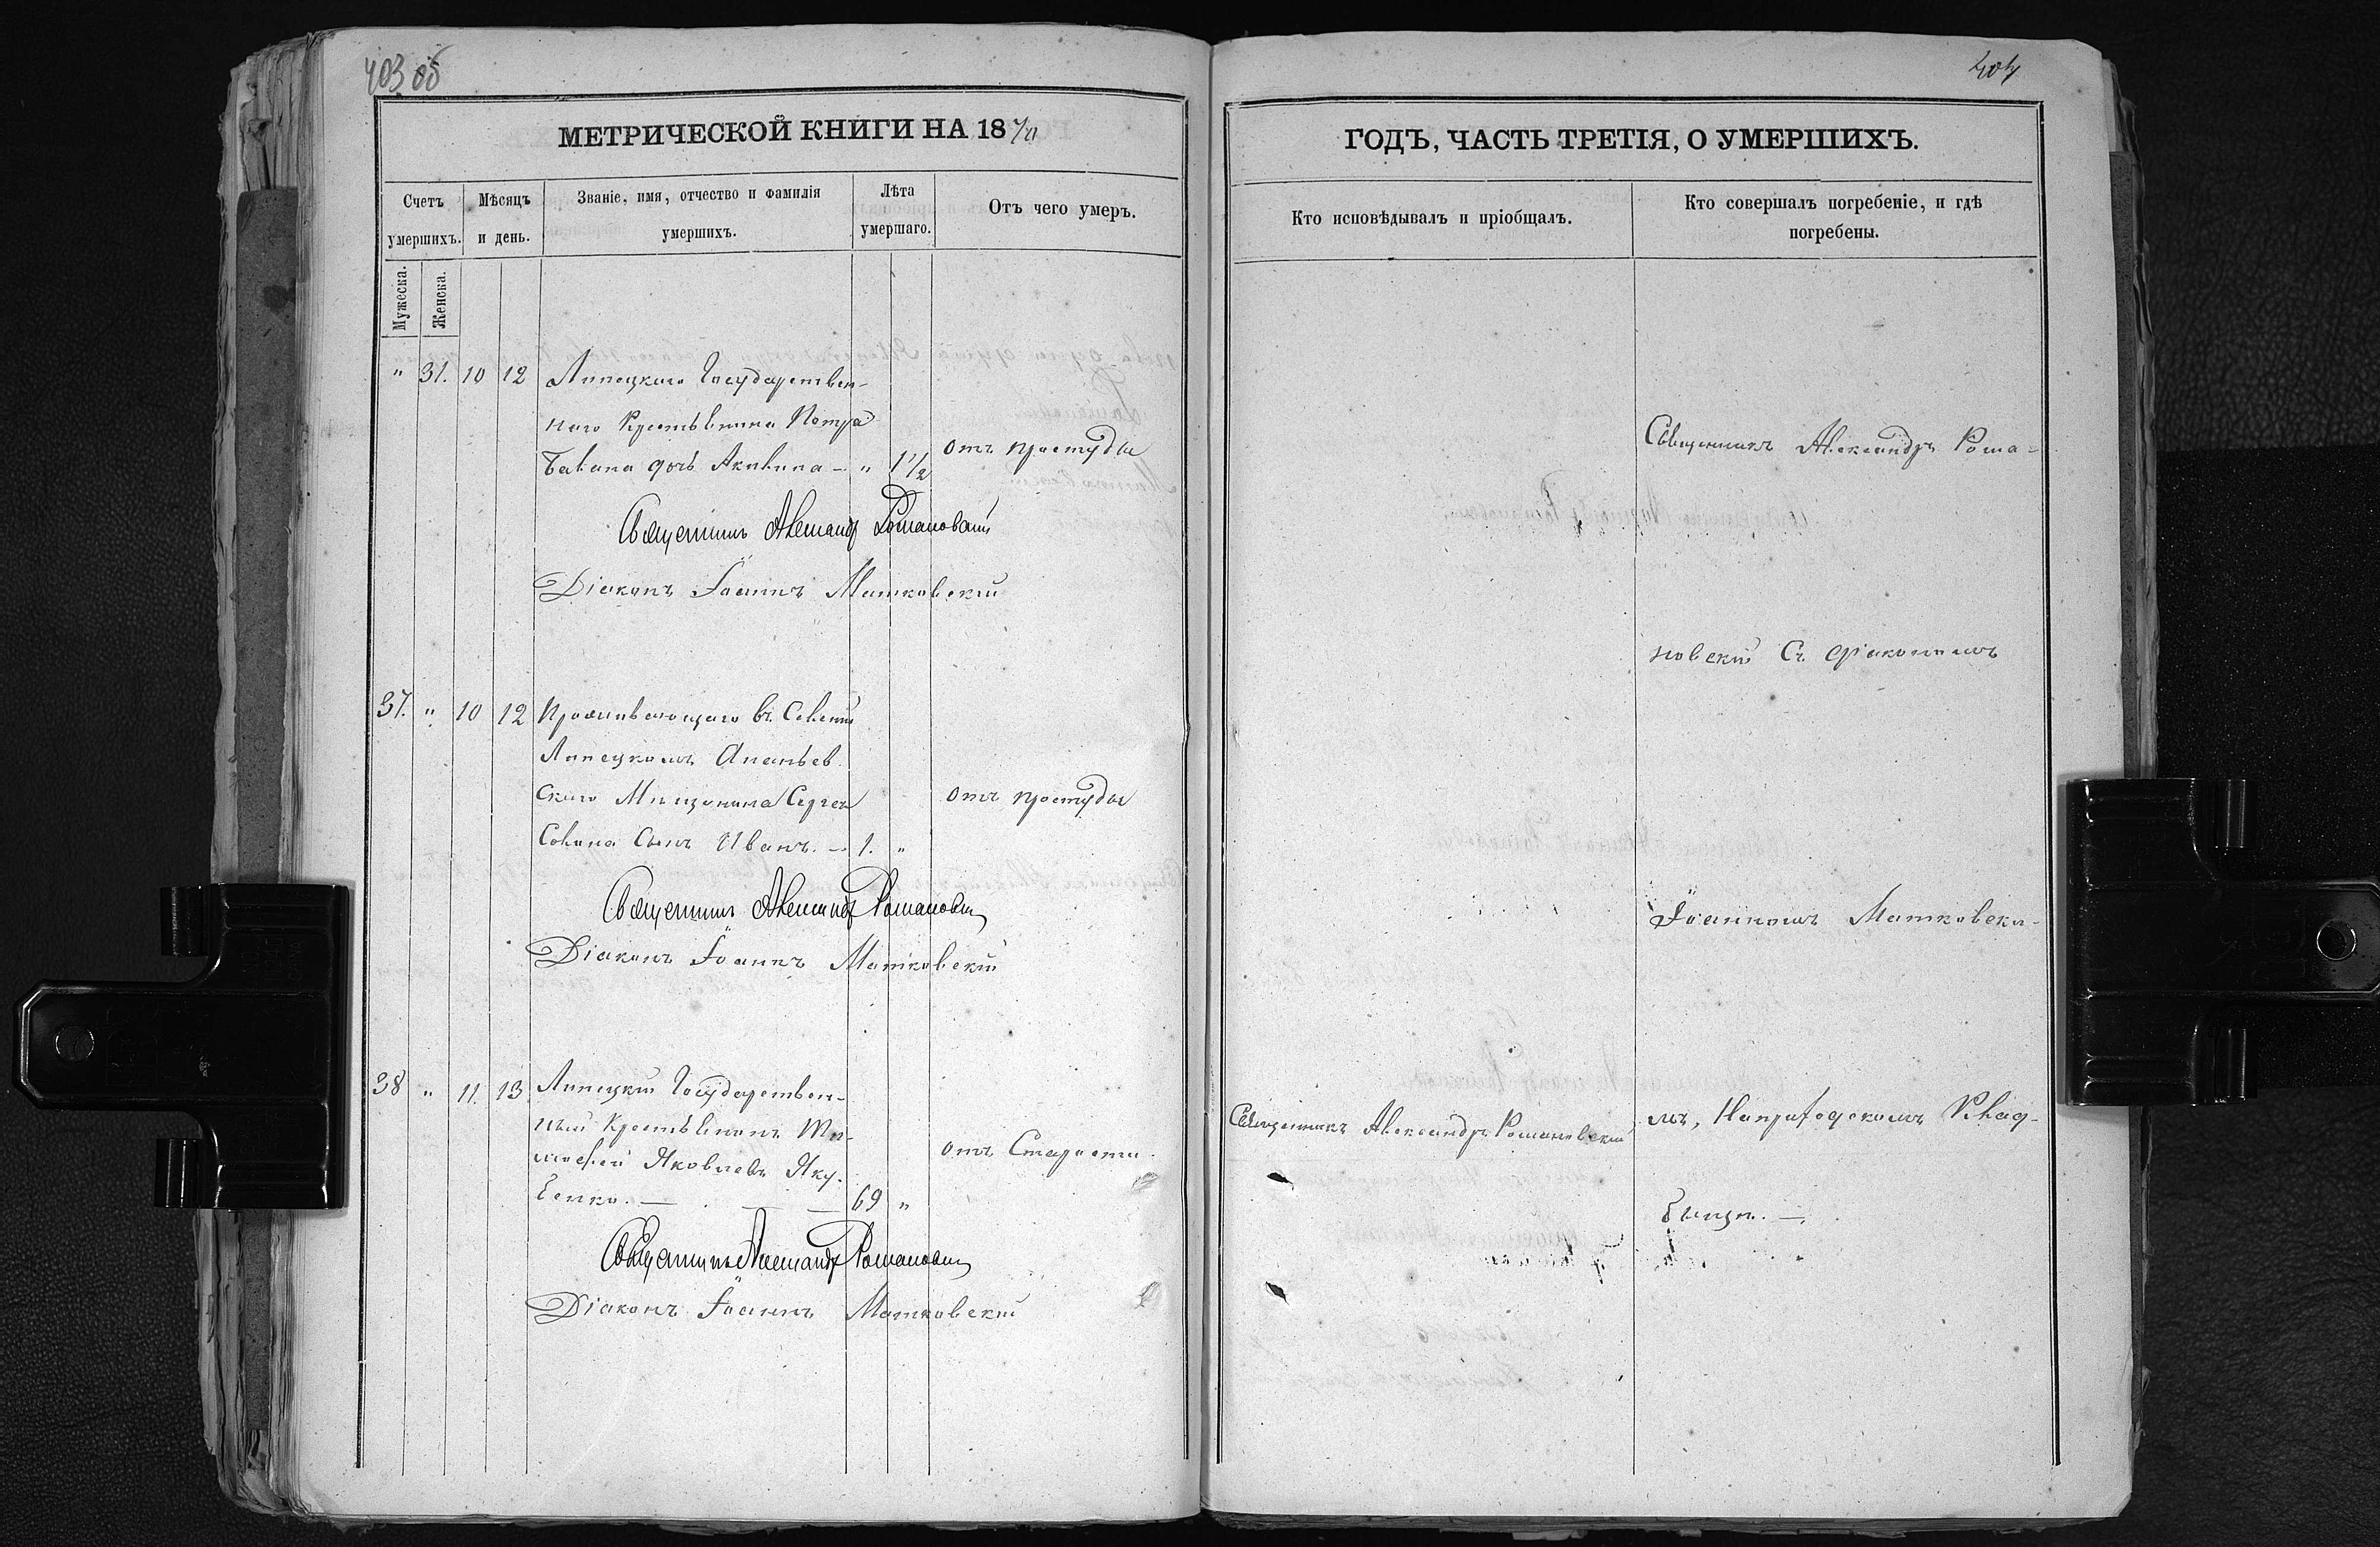 403 об
МЕТРИЧЕСКОЙ КНИГИ НА 1870
Счетъ умершихъ.
Мѣсяцъ и день.
Званіе, имя, отчество и фамилія умершихъ.
Лѣта умершаго.
Отъ чего умеръ.
Мужеска.
Женска.
" 31. 10 12 Липецкаго Государствен-
наго Крестьянина Петра
дочь Акилина — " 1 1/2 отъ простуды
Священникъ Александръ Романовскій
Діаконъ Іоаннъ Матковскій
37. " 10 12 Проживающаго въ Селеніи
Липецкомъ Ананьев
скаго Мищанина Сергея
сынъ Иванъ. — 1. " отъ простуды
Священникъ Александръ Романовскій
Діаконъ Іоаннъ Матковскій
38 " 11. 13. Липецкій Государствен-
ный Крестьянинъ Ти-
мофей Яковлевъ Яку-
бенко. — — — 69 " отъ Старости.
Священникъ Александръ Романовскій
Діаконъ Іоаннъ Матковскій
404
ГОДЪ, ЧАСТЬ ТРЕТІЯ, О УМЕРШИХЪ.
Кто исповѣдывалъ и пріобщалъ.
Кто совершалъ погребеніе, и гдѣ
погребены.
Священникъ Александръ Рома-
новскій Съ діакономъ
Іоанномъ Матковски-
Священникъ Александръ Романовскій
мъ, Наприходскомъ Клад-
бищи. —